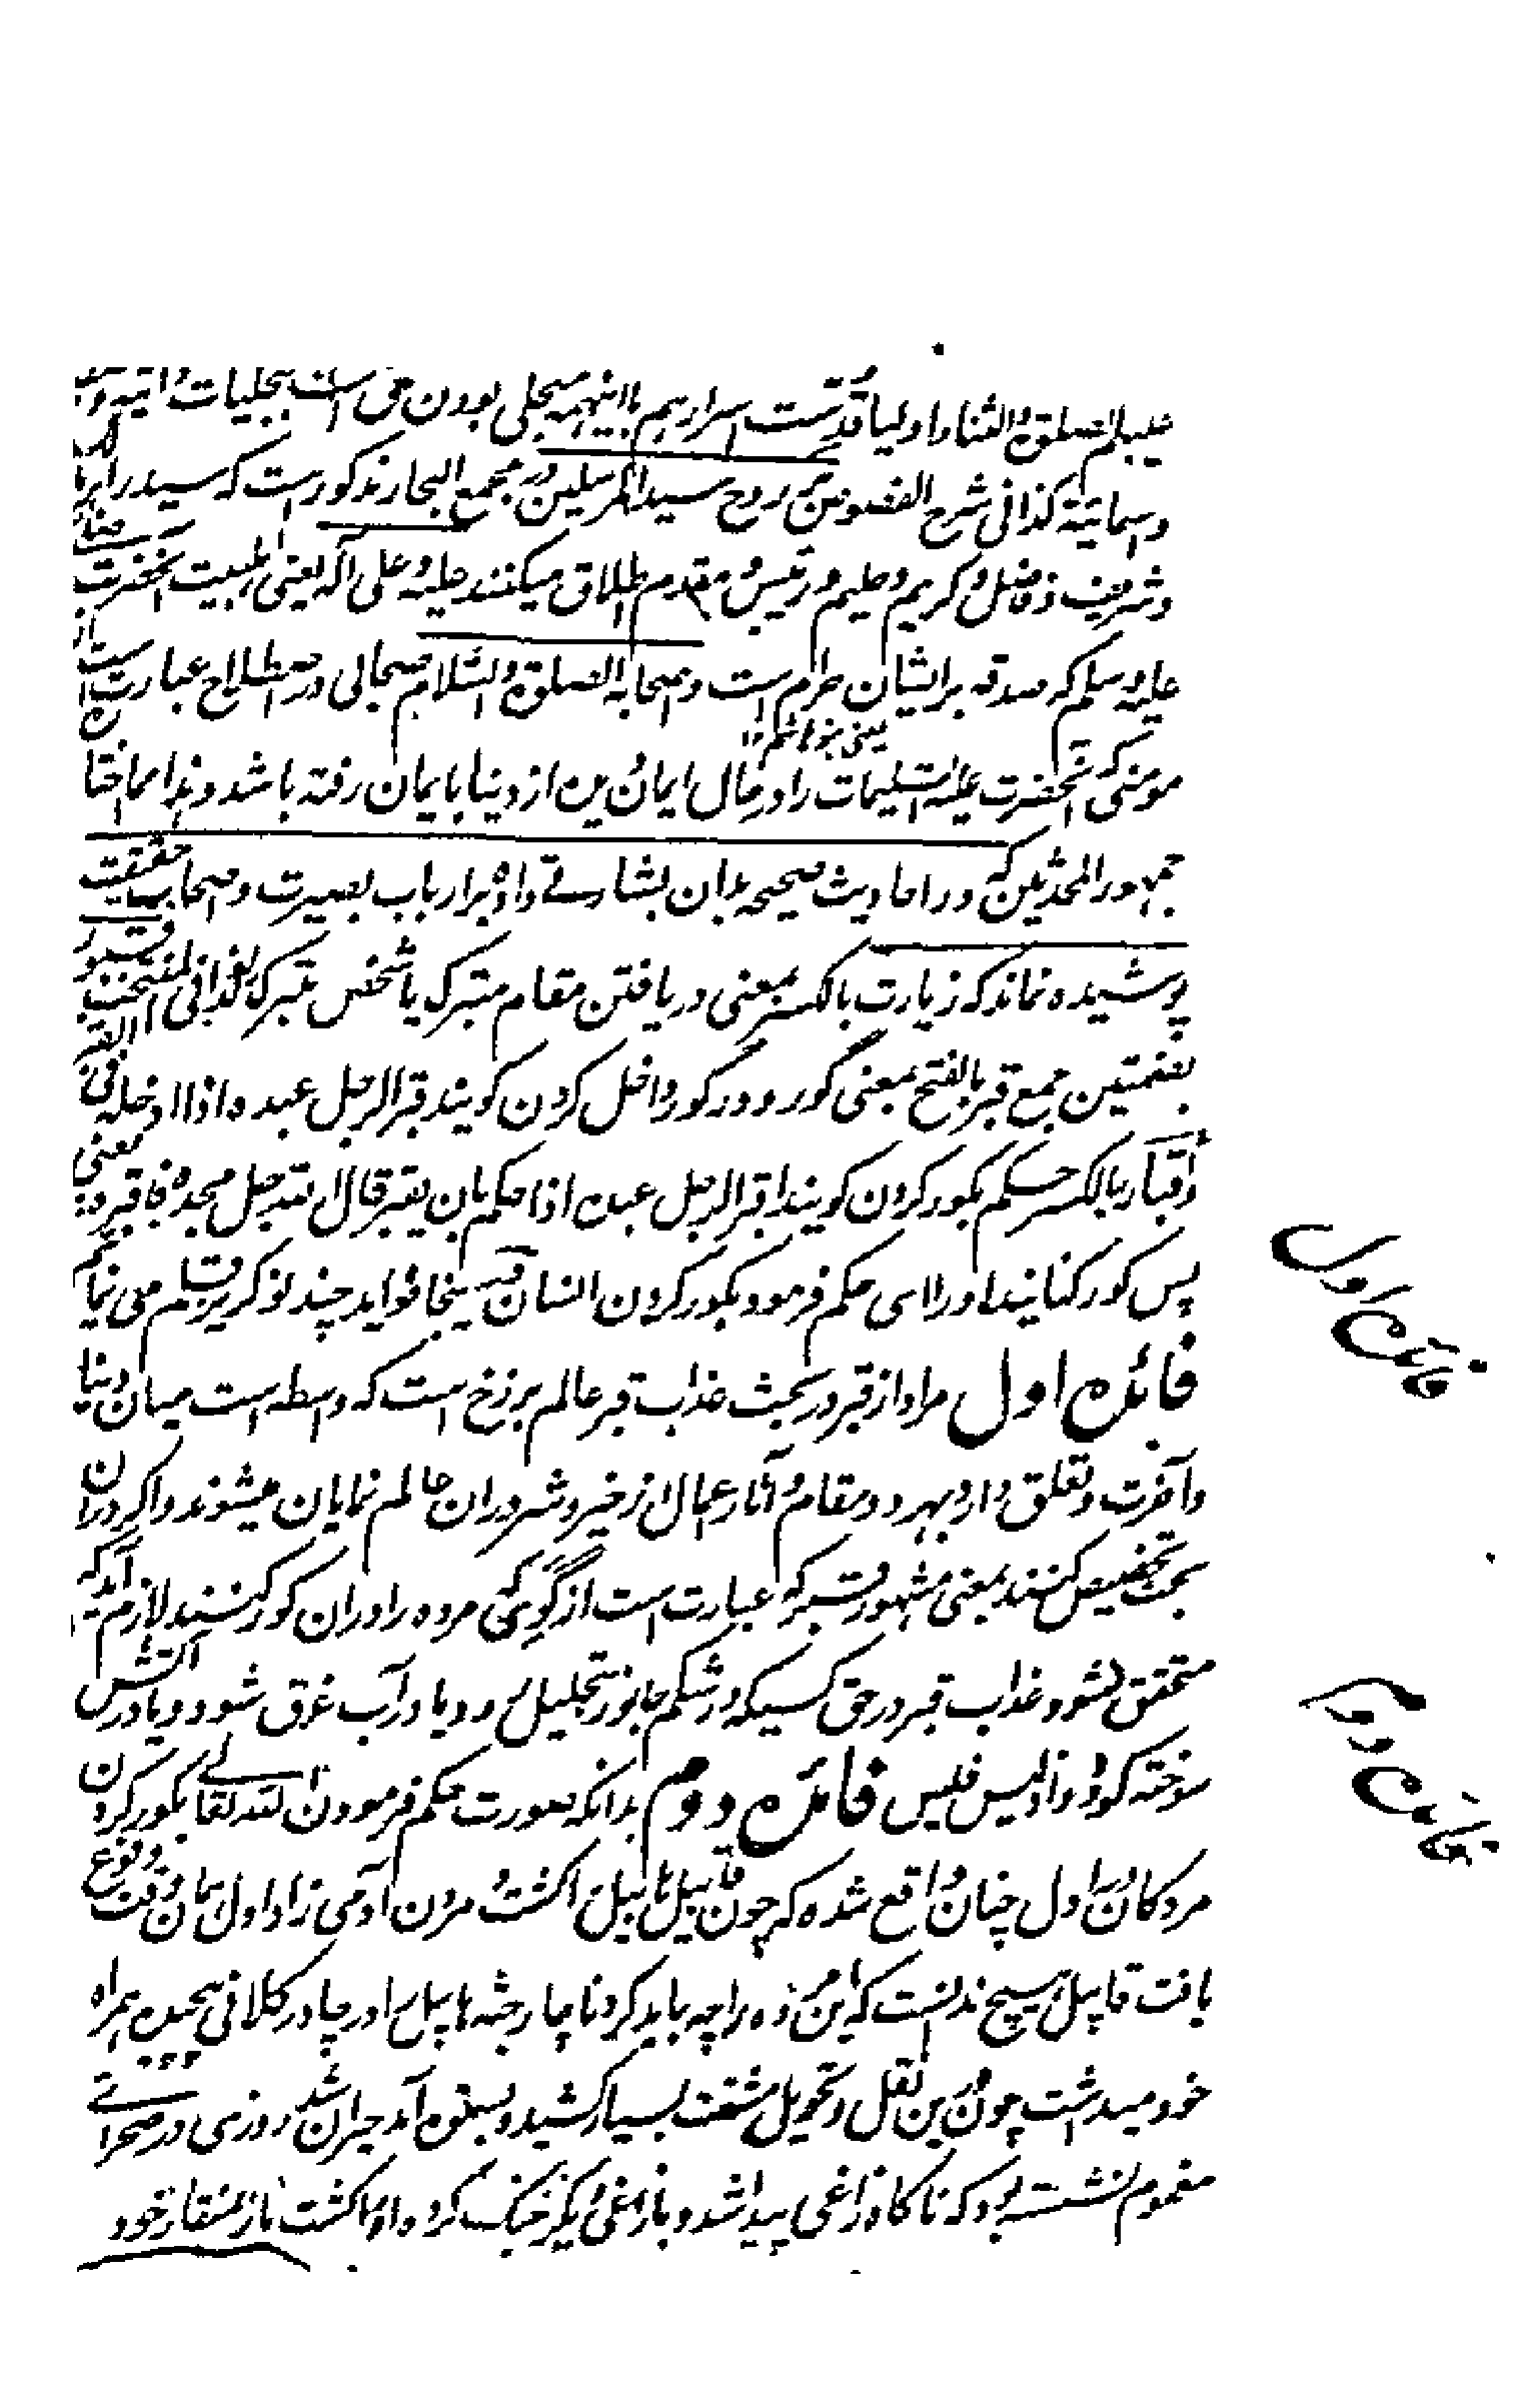 علیهم الصلوة والثنا و اولیا قدست اسرارهم بااینهمه متجلی بودن حق است بتجلیات ذاتیه و
واسمائیة کذا فی شرح الفصوص بر روح سید المرسلین در مجمع البحار مذکور است که سید را بر
و شریف و فاضل و کریم و حلیم و رئیس و مقدم اطلاق میکنند علیه و علی آله یعنی اهلبیت آنحضرت
علیه وسلم که صدقه بر ایشان حرام است و اصحابه الصلوة والسلام صحابی در اصطلاح عبارت است از
یعنی بنو هاشم ۱۲
مومنی که آنحضرت علیه التسلیمات را در حال ایمان دیده از دنیا با یمان رفته باشد و هذا مما اختاره
جمهور المحدثین که در احادیث صحیحه بدان بشارتے داده بر ارباب بصیرت و اصحاب حقیقت
پوشیده نماند که زیارت بالکسر بمعنی دریافتن مقام متبرک یا شخص متبرک کذا فی المنتخب قبور
بضمتین جمع قبر بالفتح بمعنی گور و در گور داخل کردن گویند قبر الرجل عبده اذا ادخله فی القبر
و اقبار بالکسر حکم بگور کردن گویند اقبر الرجل عبده اذا حکم بان یقبر قال الله جل مجده فاقبره یعنی
پس گور کنانید اورا ای حکم فرمود بگور کردن انسان در ینجا فواید چند نوک ریز قلم می نمایم
فائدہ اول مراد از قبر در بحث عذاب قبر عالم برزخ است که واسطه است میان دنیا
و آخرت و تعلق دارد بهر دو مقام و آثار اعمال از خیر و شر در ان عالم نمایان میشوند و اگر در ان
بحث تخصیص کنند بمعنی مشهور قبر که عبارت است از گوی که مرده را در ان گور کنند لازم آید که
متحقق نشود عذاب قبر در حق کسیکه در شکم جانور تحلیل رود یا در آب غرق شود و یا در آتش
سوخته گردد و اذ لیس فلیس فائدہ دوم بدانکه صورت حکم فرمودن الله تعالے بگور کردن
مردگان اول چنان واقع شده که چون قابیل هابیل را کشت و مردن آدمی زاد اول همان وقت وقوع
یافت قابیل هیچ ندانست که این مرده را چه باید کرد ناچار جثه هابیل را در چادر کلانی پیچیده همراه
خود میداشت چون ازین نقل و تحویل مشقت بسیار کشید و بستوه آمد حیران شد روزی در صحرائے
مغموم نشسته بود که ناگاه زاغی پیدا شد و با زاغی دیگر جنگ کرده او را کشت باز بمنقار خود
فائدہ اول
فائدہ دوم